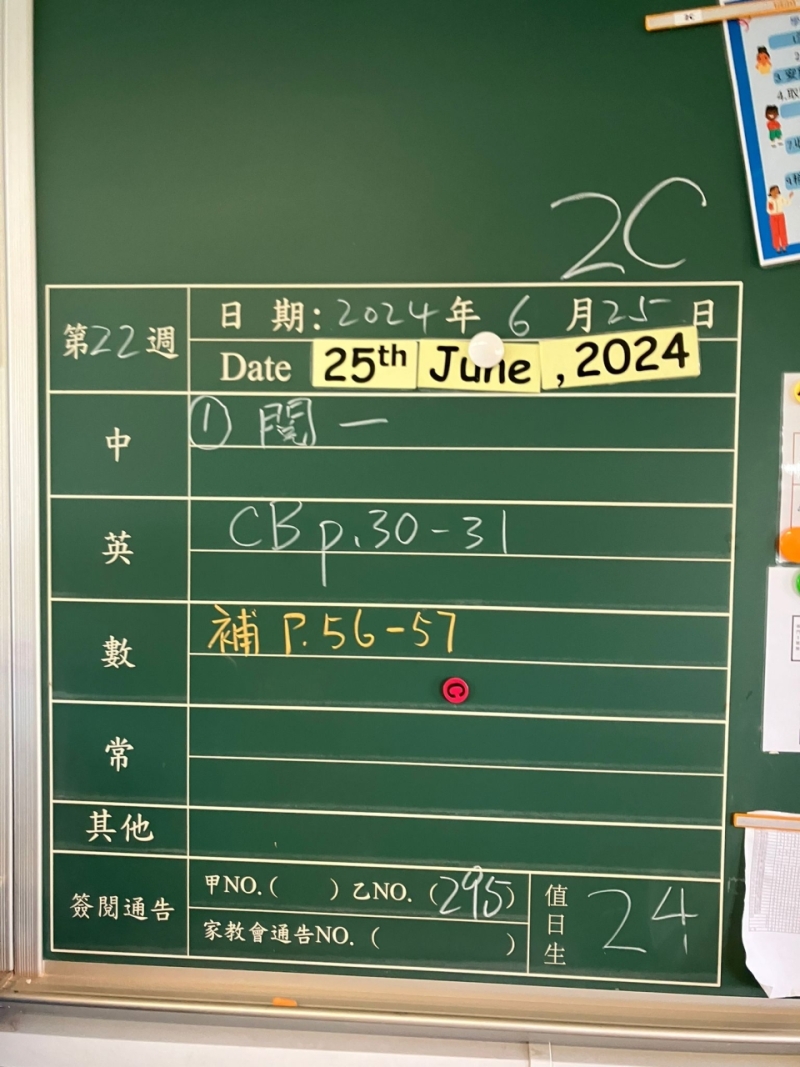 2C
第22週
日 期:2024年 6 月25日
Date 25th June , 2024
中
① 閱一
英
CB p.30-31
數
補 P.56-57
C
常
其他
簽閱通告
甲NO.( ) 乙NO. (295)
家教會通告NO. ( )
值日生
24